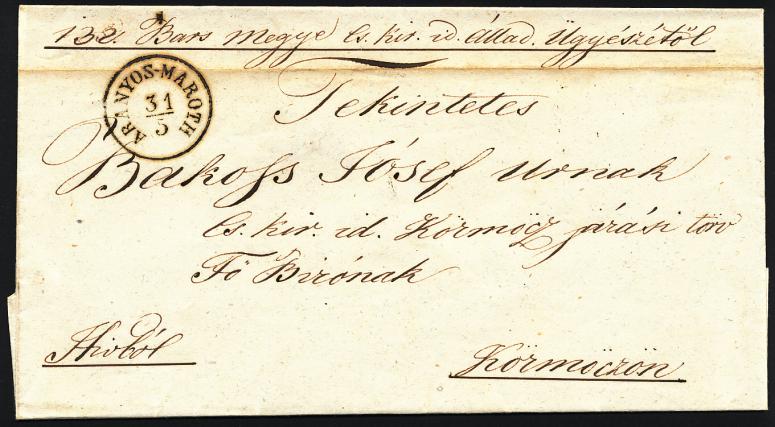 132. Bars Megye Cs. kir. id. Állad. Ügyészétől
ARANYOS-MAROTH
31
5
Tekintetes
Bakoss Jósef Urnak
Cs. kir. id. Körmöcz járási törv
Fő Birónak
Hivból
Körmöczön